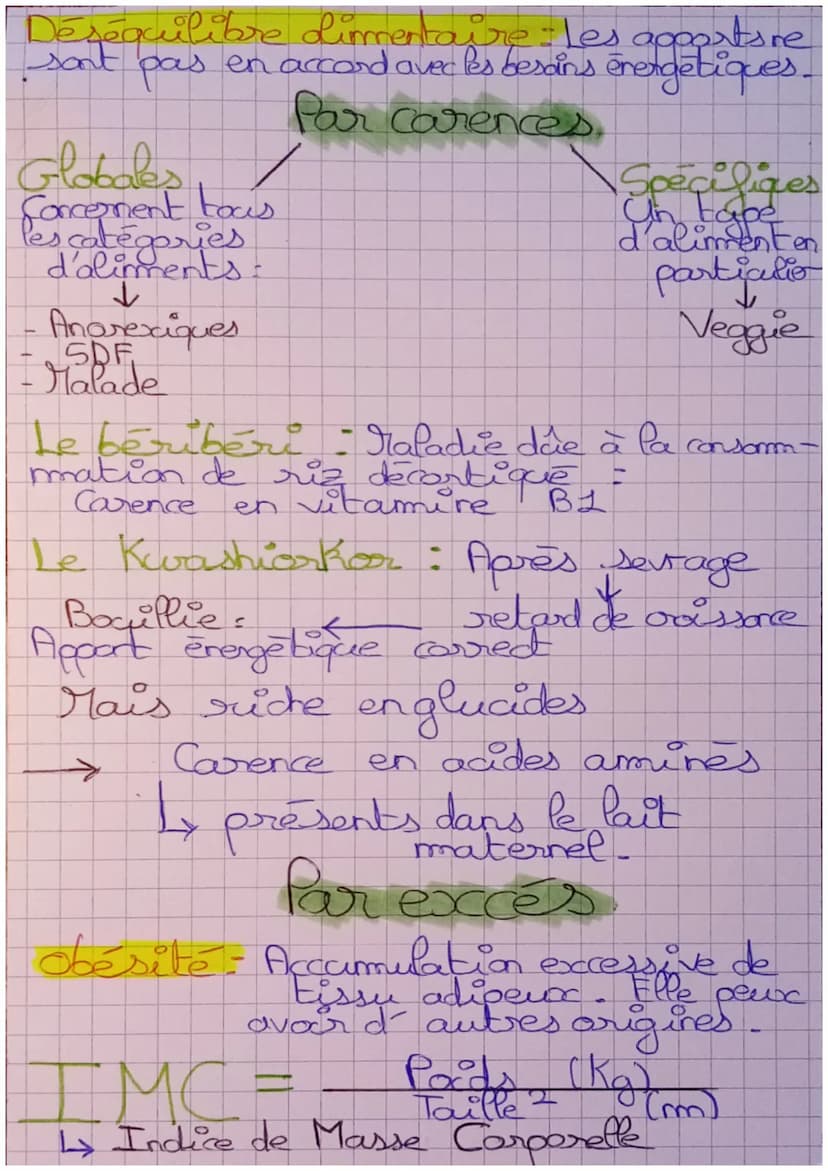 Déséquilibre alimentaire : Les apports ne
sont pas en accord avec les besoins énergétiques.
Par carences
Globales
Concernent tous
les catégories
d'aliments :
↓
- Anorexiques
- SDF
- Malade
Spécifiques
Un type
d'aliment en
particulier
↓
Veggie
Le béribéri : Maladie dûe à la consomm-
mation de riz décortiqué =
Carence en vitamine B1
Le Kwashiorkor : Après sevrage
↓
retard de croissance
←
Bouillie :
Apport énergétique correct
Mais riche en glucides
→ Carence en acides aminés
↳ présents dans le lait
maternel.
Par excès
Obésité : Accumulation excessive de
tissu adipeux. Elle peux
avoir d'autres origines.
IMC = Poids (Kg)
Taille² (m)
↳ Indice de Masse Corporelle